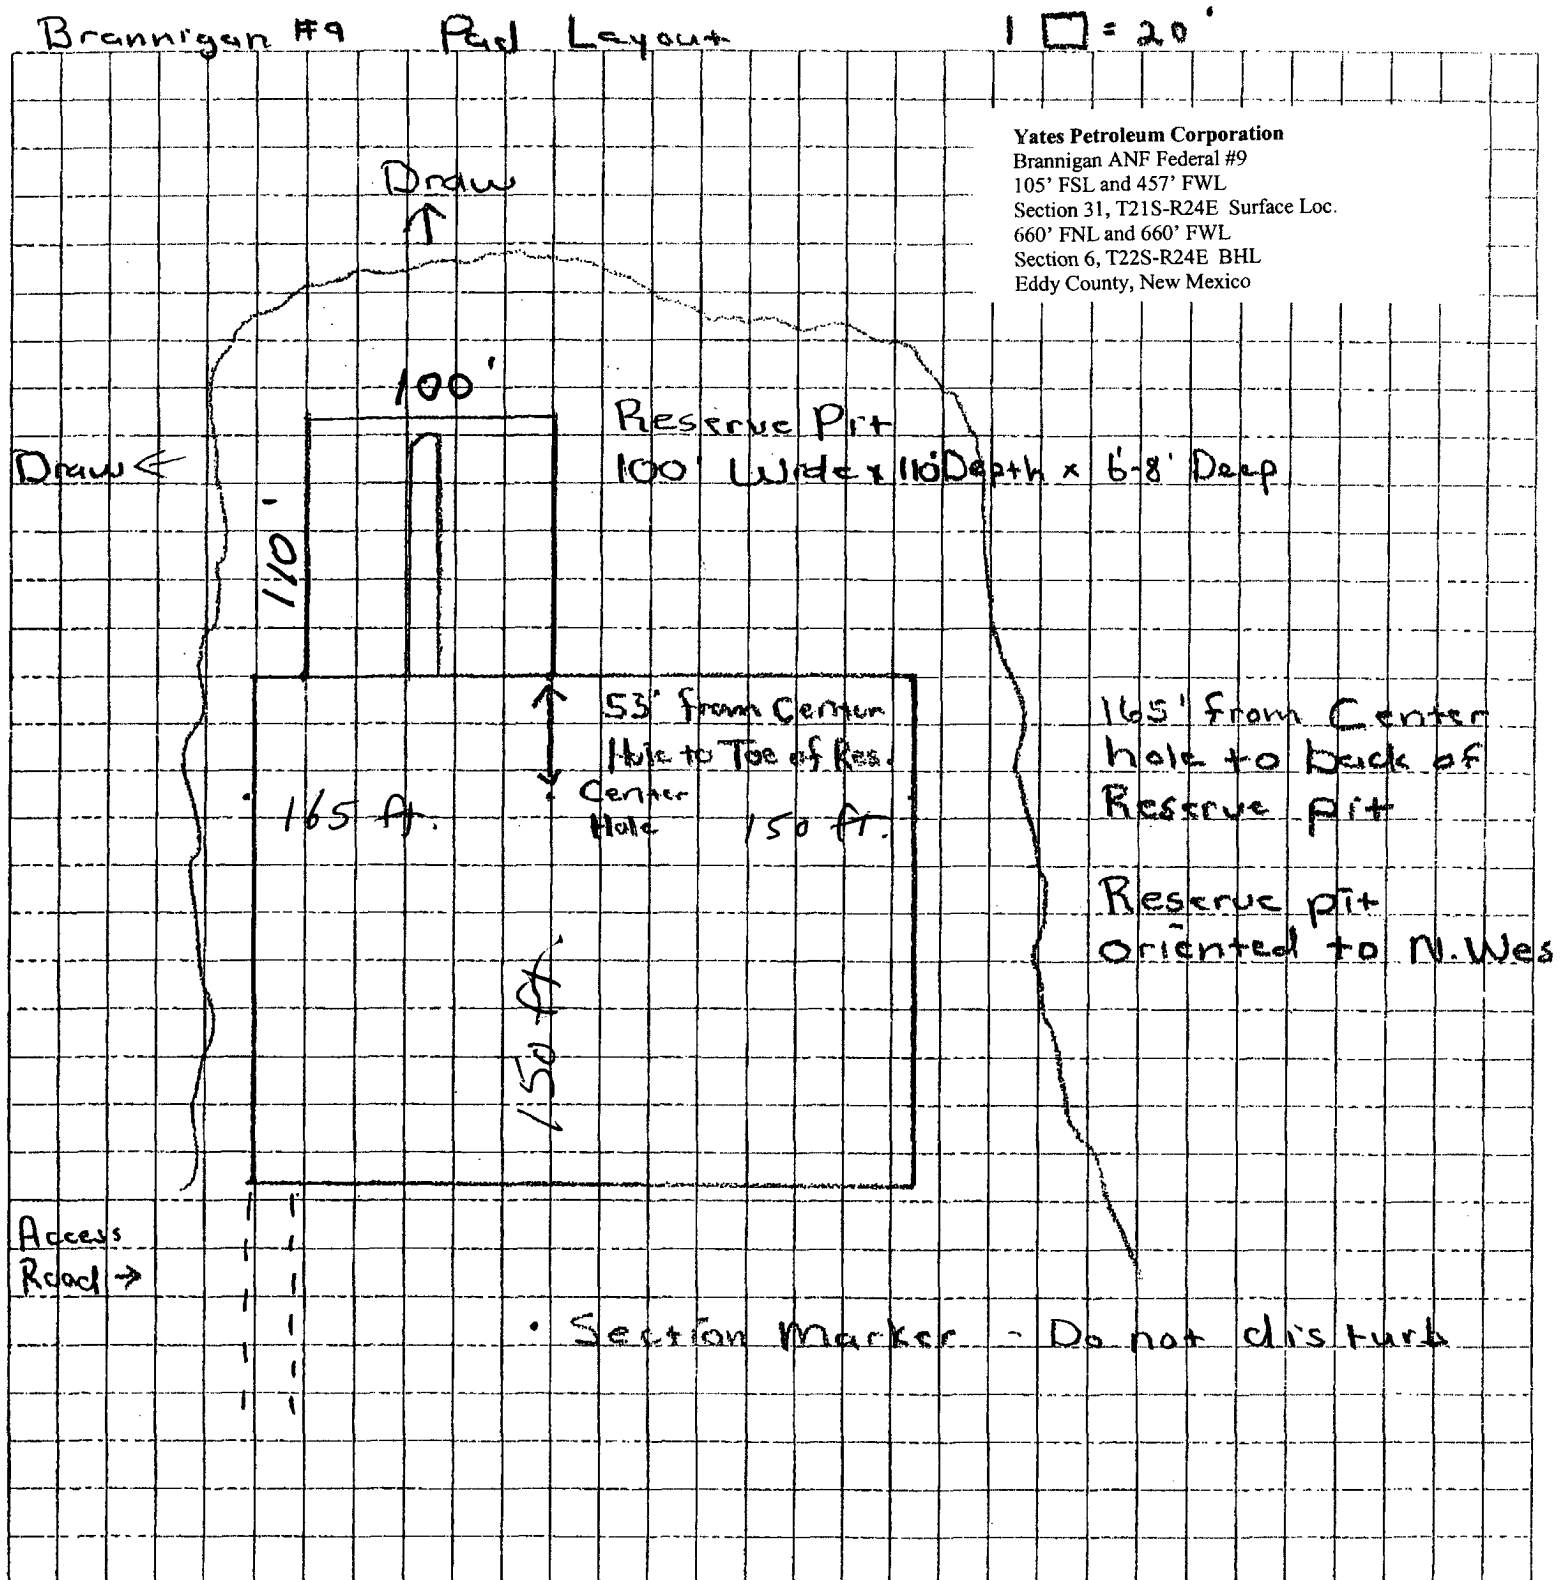 Brannigan #9 Pad Layout 1 □ = 20'
Yates Petroleum Corporation
Brannigan ANF Federal #9
105' FSL and 457' FWL
Section 31, T21S-R24E Surface Loc.
660' FNL and 660' FWL
Section 6, T22S-R24E BHL
Eddy County, New Mexico
Draw
↑
100'
Reserve Pit
100' Wide x 110' Depth x 6'-8' Deep
Draw ←
110'
53' from Center
Hole to Toe of Res.
Center
Hole
165 ft.
150 ft.
165' from Center
hole to back of
Reserve pit
Reserve pit
oriented to N.Wes
150 ft.
Access
Road →
• Section Marker - Do not disturb